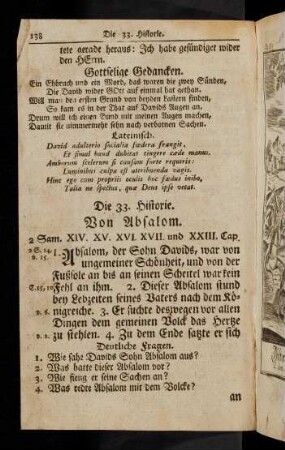 138 Die 33. Historie.
tete gerade heraus: Jch habe gesündiget wider
den HErrn.
Gottselige Gedancken.
Ein Ehbruch und ein Mord, das waren die zwey Sünden,
Die David wider GOtt auf einmal hat gethan.
Will man den ersten Grund von beyden Lastern finden,
So kam es in der That auf Davids Augen an.
Drum will ich einen Bund mit meinen Augen machen,
Damit sie nimmermehr sehn nach verbotnen Sachen.
Lateinisch.
David adulterio socialia fœdera frangit,
Et simul haud dubitat tingere cæde manus.
Amborum scelerum si causam forte requiris:
Luminibus culpa est attribuenda vagis.
Hinc ego cum propriis oculis hoc fœdus inibo,
Talia ne spectus, quæ Deus ipse vetat.
Die 33. Historie.
Von Absalom.
2 Sam. XIV. XV. XVI. XVII. und XXIII. Cap.
2 S. 14.
v. 25.
1. Absalom, der Sohn Davids, war von
ungemeiner Schönheit, und von der
Fußsole an bis an seinen Scheitel war kein
C. 15, 10 Fehl an ihm. 2. Dieser Absalom stund
bey Lebzeiten seines Vaters nach dem Kö-
v. 6. nigreiche. 3. Er suchte deswegen vor allen
Dingen dem gemeinen Volck das Hertze
v. 2. zu stehlen. 4. Zu dem Ende satzte er sich
Deutliche Fragen.
1. Wie sahe Davids Sohn Absalom aus?
2. Was hatte dieser Absalom vor?
3. Wie fieng er seine Sachen an?
4. Was redte Absalom mit dem Volcke?
an